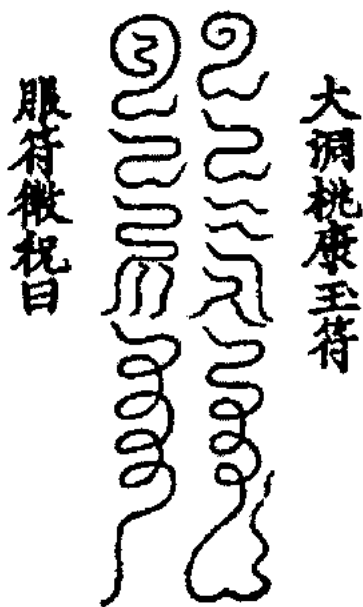 大洞桃康玉符
服符微祝曰